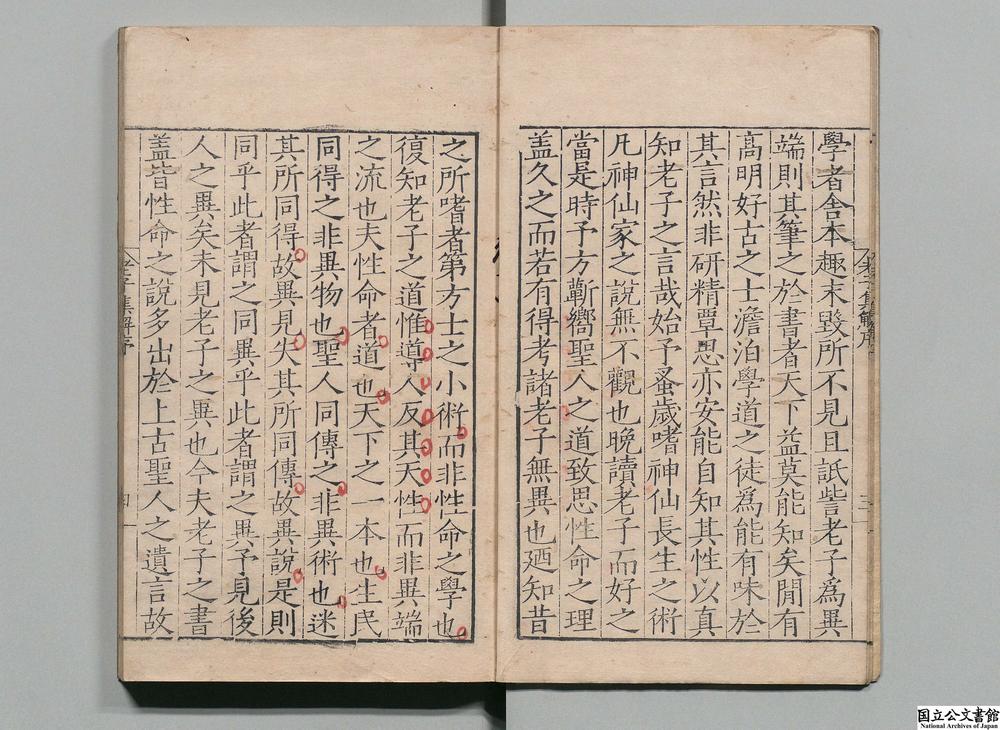 學者舍本趣末毀所不見且詆訾老子爲異
端則其筆之於書者天下益莫能知矣閒有
高明好古之士澹泊學道之徒爲能有味於
其言然非研精覃思亦安能自知其性以真
知老子之言哉始予蚤歲嗜神仙長生之術
凡神仙家之說無不觀也晚讀老子而好之
當是時予方蘄嚮聖人之道致思性命之理
盖久之而若有得考諸老子無異也廼知昔
之所嗜者第方士之小術而非性命之學也
復知老子之道惟導人反其天性而非異端
之流也夫性命者道也天下之一本也生民
同得之非異物也聖人同傳之非異術也迷
其所同得故異見失其所同傳故異說是則
同乎此者謂之同異乎此者謂之異予見後
人之異矣未見老子之異也今夫老子之書
盖皆性命之說多出於上古聖人之遺言故
老子集解序
四
国立公文書館
National Archives of Japan